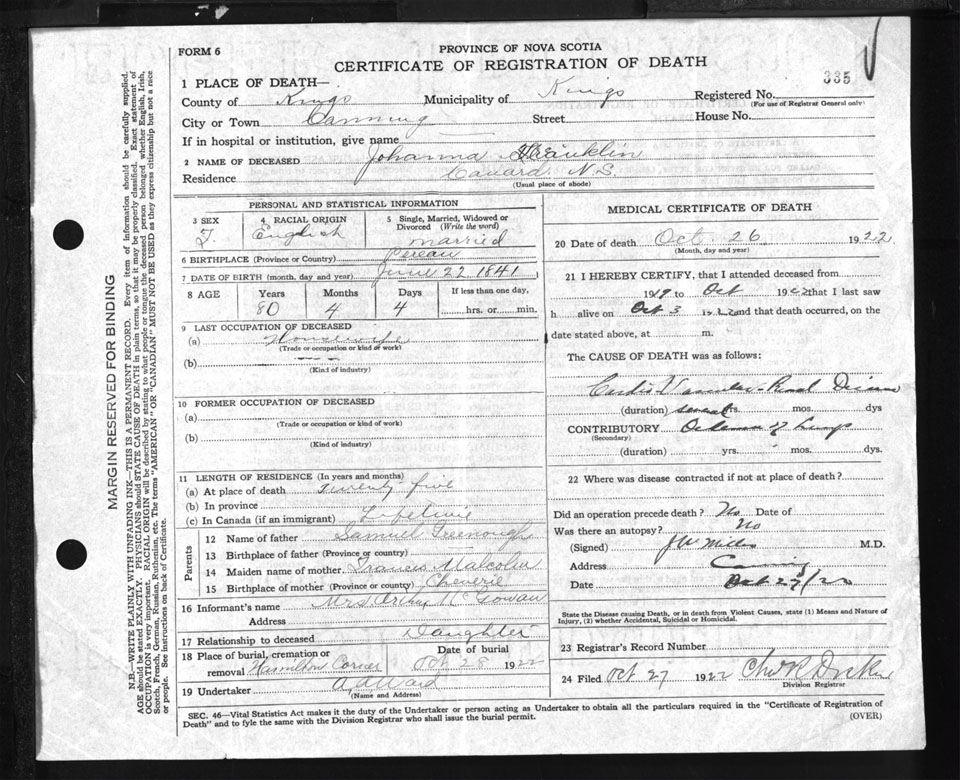 FORM 6
PROVINCE OF NOVA SCOTIA
CERTIFICATE OF REGISTRATION OF DEATH
335
1 PLACE OF DEATH—
County of Kings Municipality of Kings Registered No.
(For use of Registrar General only)
City or Town Canning Street House No.
If in hospital or institution, give name
2 NAME OF DECEASED Johanna Franklin
Residence Canard N.S.
(Usual place of abode)
PERSONAL AND STATISTICAL INFORMATION
3 SEX 4 RACIAL ORIGIN 5 Single, Married, Widowed or Divorced (Write the word)
F. English married
6 BIRTHPLACE (Province or Country) Pereau
7 DATE OF BIRTH (month, day and year) June 22 1841
8 AGE Years Months Days If less than one day,
80 4 4 hrs. or min.
9 LAST OCCUPATION OF DECEASED
(a) Housewife
(Trade or occupation or kind of work)
(b)
(Kind of industry)
10 FORMER OCCUPATION OF DECEASED
(a)
(Trade or occupation or kind of work)
(b)
(Kind of industry)
11 LENGTH OF RESIDENCE (In years and months)
(a) At place of death twenty five
(b) In province
(c) In Canada (if an immigrant) Lifetime
Parents
12 Name of father Samuel Greenough
13 Birthplace of father (Province or country)
14 Maiden name of mother Frances Malcolm
15 Birthplace of mother (Province or country) Cheverie
16 Informant's name Mrs McGowan
Address
17 Relationship to deceased Daughter
18 Place of burial, cremation or removal Hamilton Corner Date of burial Oct 28 1922
19 Undertaker A Ward
(Name and Address)
MEDICAL CERTIFICATE OF DEATH
20 Date of death Oct 26 1922
(Month, day and year)
21 I HEREBY CERTIFY, that I attended deceased from
1919 to Oct 1922 that I last saw
h alive on Oct 3 and that death occurred, on the
date stated above, at m.
The CAUSE OF DEATH was as follows:
Cardio Vascular-Renal Disease
(duration) several yrs. mos. dys
CONTRIBUTORY Oedema of Lungs
(Secondary)
(duration) yrs. mos. dys.
22 Where was disease contracted if not at place of death?
Did an operation precede death? No Date of
Was there an autopsy? No
(Signed) M.D.
Address Canning
Date Oct 27/22
State the Disease causing Death, or in death from Violent Causes, state (1) Means and Nature of
Injury, (2) whether Accidental, Suicidal or Homicidal.
23 Registrar's Record Number
24 Filed Oct 27 1922
Division Registrar
SEC. 46—Vital Statistics Act makes it the duty of the Undertaker or person acting as Undertaker to obtain all the particulars required in the "Certificate of Registration of
Death" and to fyle the same with the Division Registrar who shall issue the burial permit.
(OVER)
MARGIN RESERVED FOR BINDING
N.B.—WRITE PLAINLY WITH UNFADING INK—THIS IS A PERMANENT RECORD. Every item of information should be carefully supplied.
AGE should be stated EXACTLY. PHYSICIANS should STATE CAUSE OF DEATH in plain terms, so that it may be properly classified. Exact statement of
OCCUPATION is very important. RACIAL ORIGIN will be described by stating to what people or tongue the deceased person belonged whether English, Irish,
Scotch, French, German, Russian, Ruthenian, etc. The terms "AMERICAN" OR "CANADIAN" MUST NOT BE USED as they express citizenship but not a race
or people. See instructions on back of Certificate.